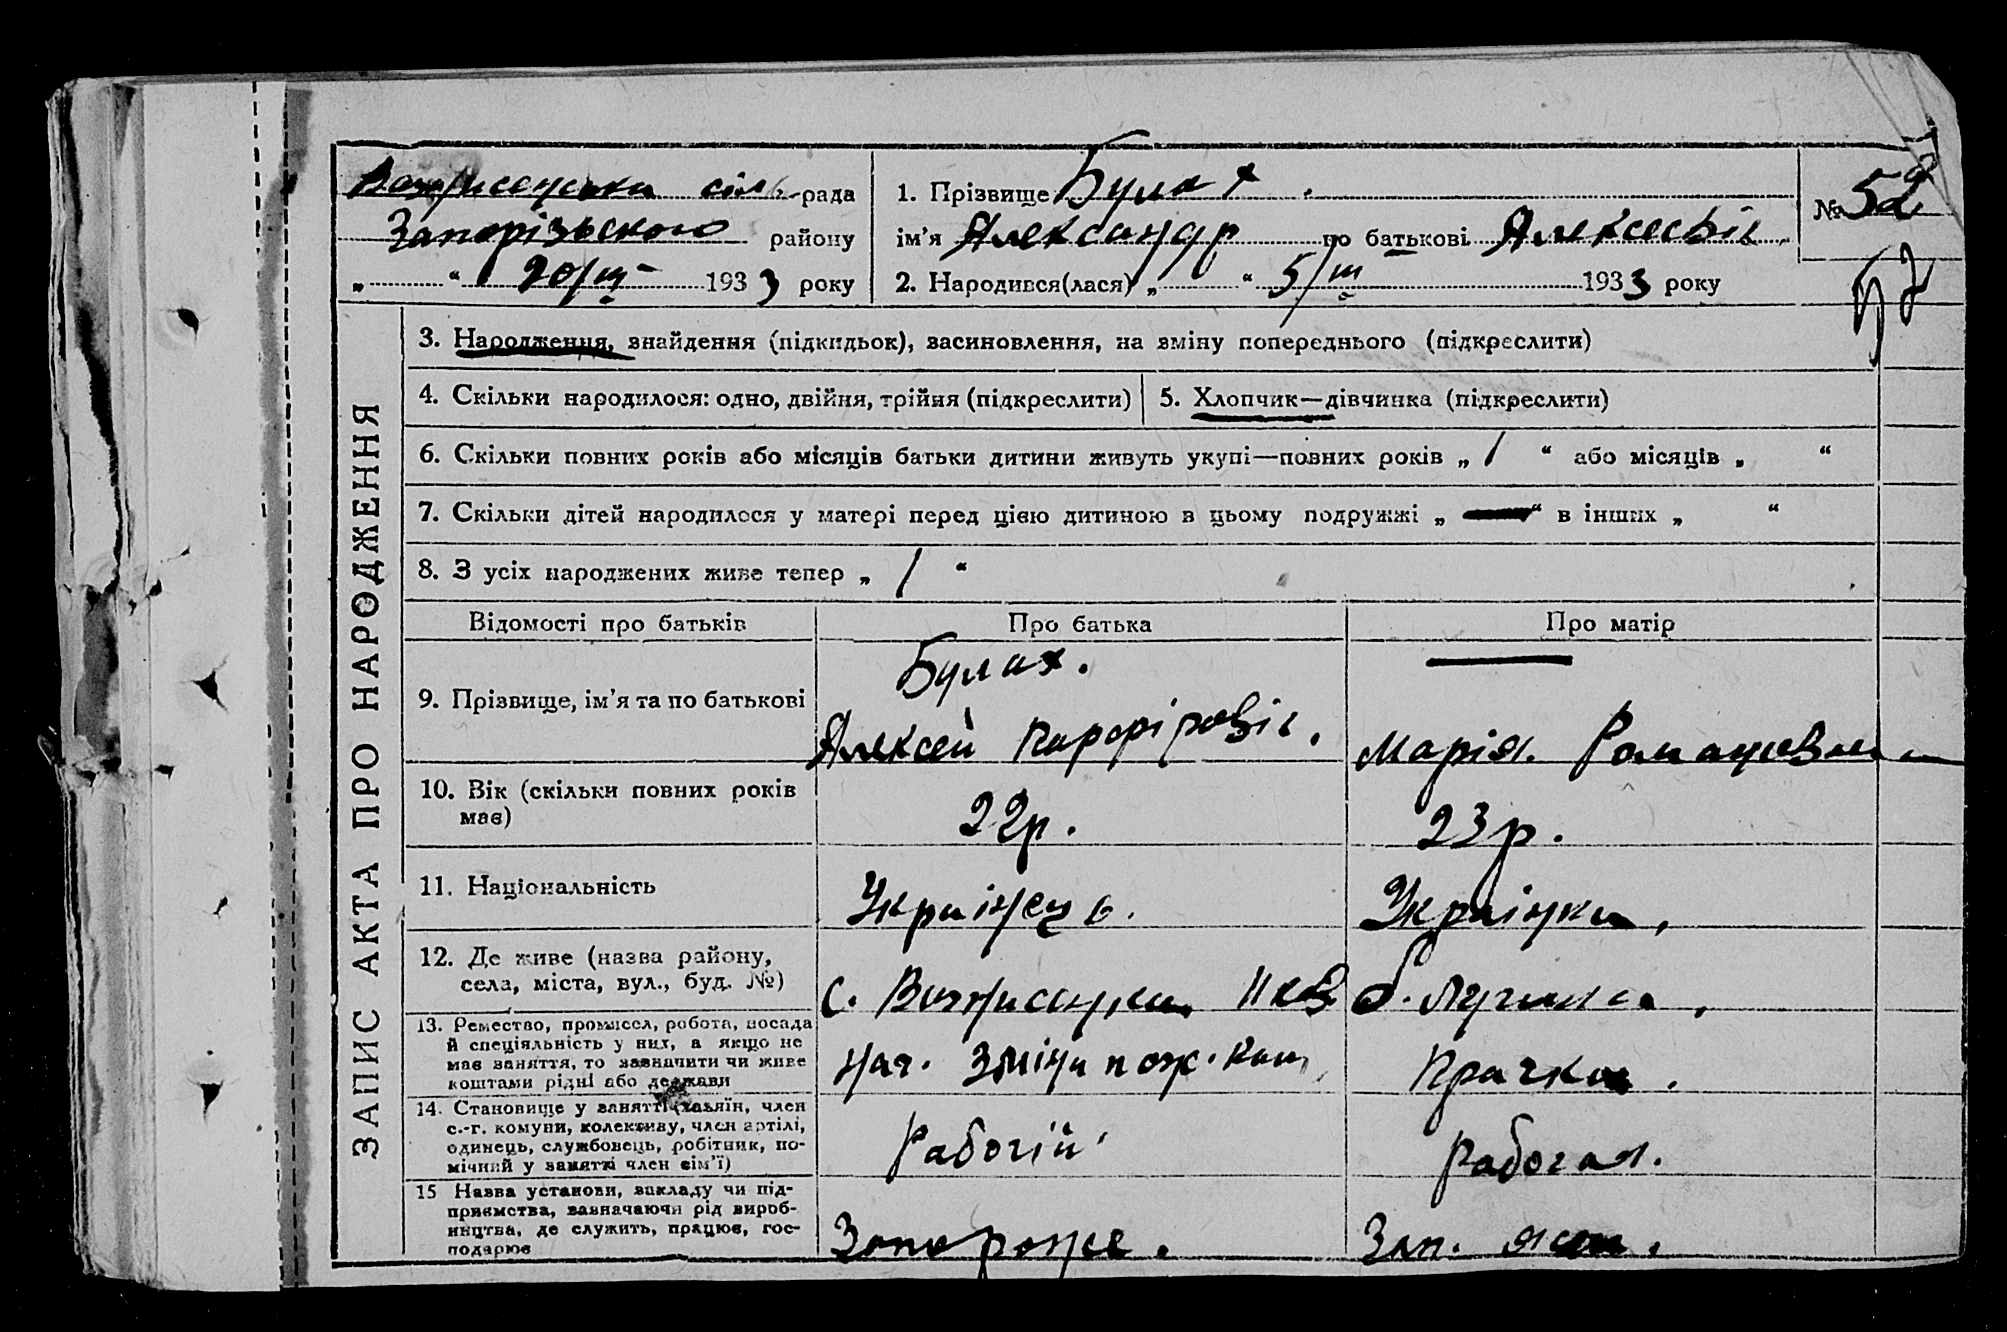 Вознисенська сіль рада
Запорізьского району
„ “ 20/III 1933 року
1. Прізвище Булах
ім’я Александр по батькові Алексеевіч
2. Народився(лася) „ “ 5/III 1933 року
№ 52
52
ЗАПИС АКТА ПРО НАРОДЖЕННЯ
3. Народження, знайдення (підкидьок), васиновлення, на зміну попереднього (підкреслити)
4. Скільки народилося: одно, двійня, трійня (підкреслити)
5. Хлопчик—дівчинка (підкреслити)
6. Скільки повних років або місяців батьки дитини живуть укупі—повних років „ 1 “ або місяців „ “
7. Скільки дітей народилося у матері перед цією дитиною в цьому подружжі „ — “ в інших „ “
8. З усіх народжених живе тепер „ 1 “
Відомості про батьків
Про батька
Про матір
9. Прізвище, ім’я та по батькові
Булах.
Алексей Парфіровіч.
Марія. Романовна
10. Вік (скільки повних років
має)
22р.
23р.
11. Національність
Українець.
Українка,
12. Де живе (назва району,
села, міста, вул., буд. №)
с. Вознисенка
13. Ремество, промисел, робота, посада
й спеціяльність у них, а якщо не
має заняття, то зазначити чи живе
коштами рідні або держави
нач. Зміни пож. Ком
Прачка.
14. Становище у занятті (хазяїн, член
с.-г. комуни, колективу, член артілі,
одинець, службовець, робітник, по-
мічний у занятті член сім’ї)
Рабочій
Рабочая.
15 Назва установи, закладу чи під-
приємства, зазначаючи рід вироб-
ництва, де служить, працює, гос-
подарює
Запороже.
Зап.